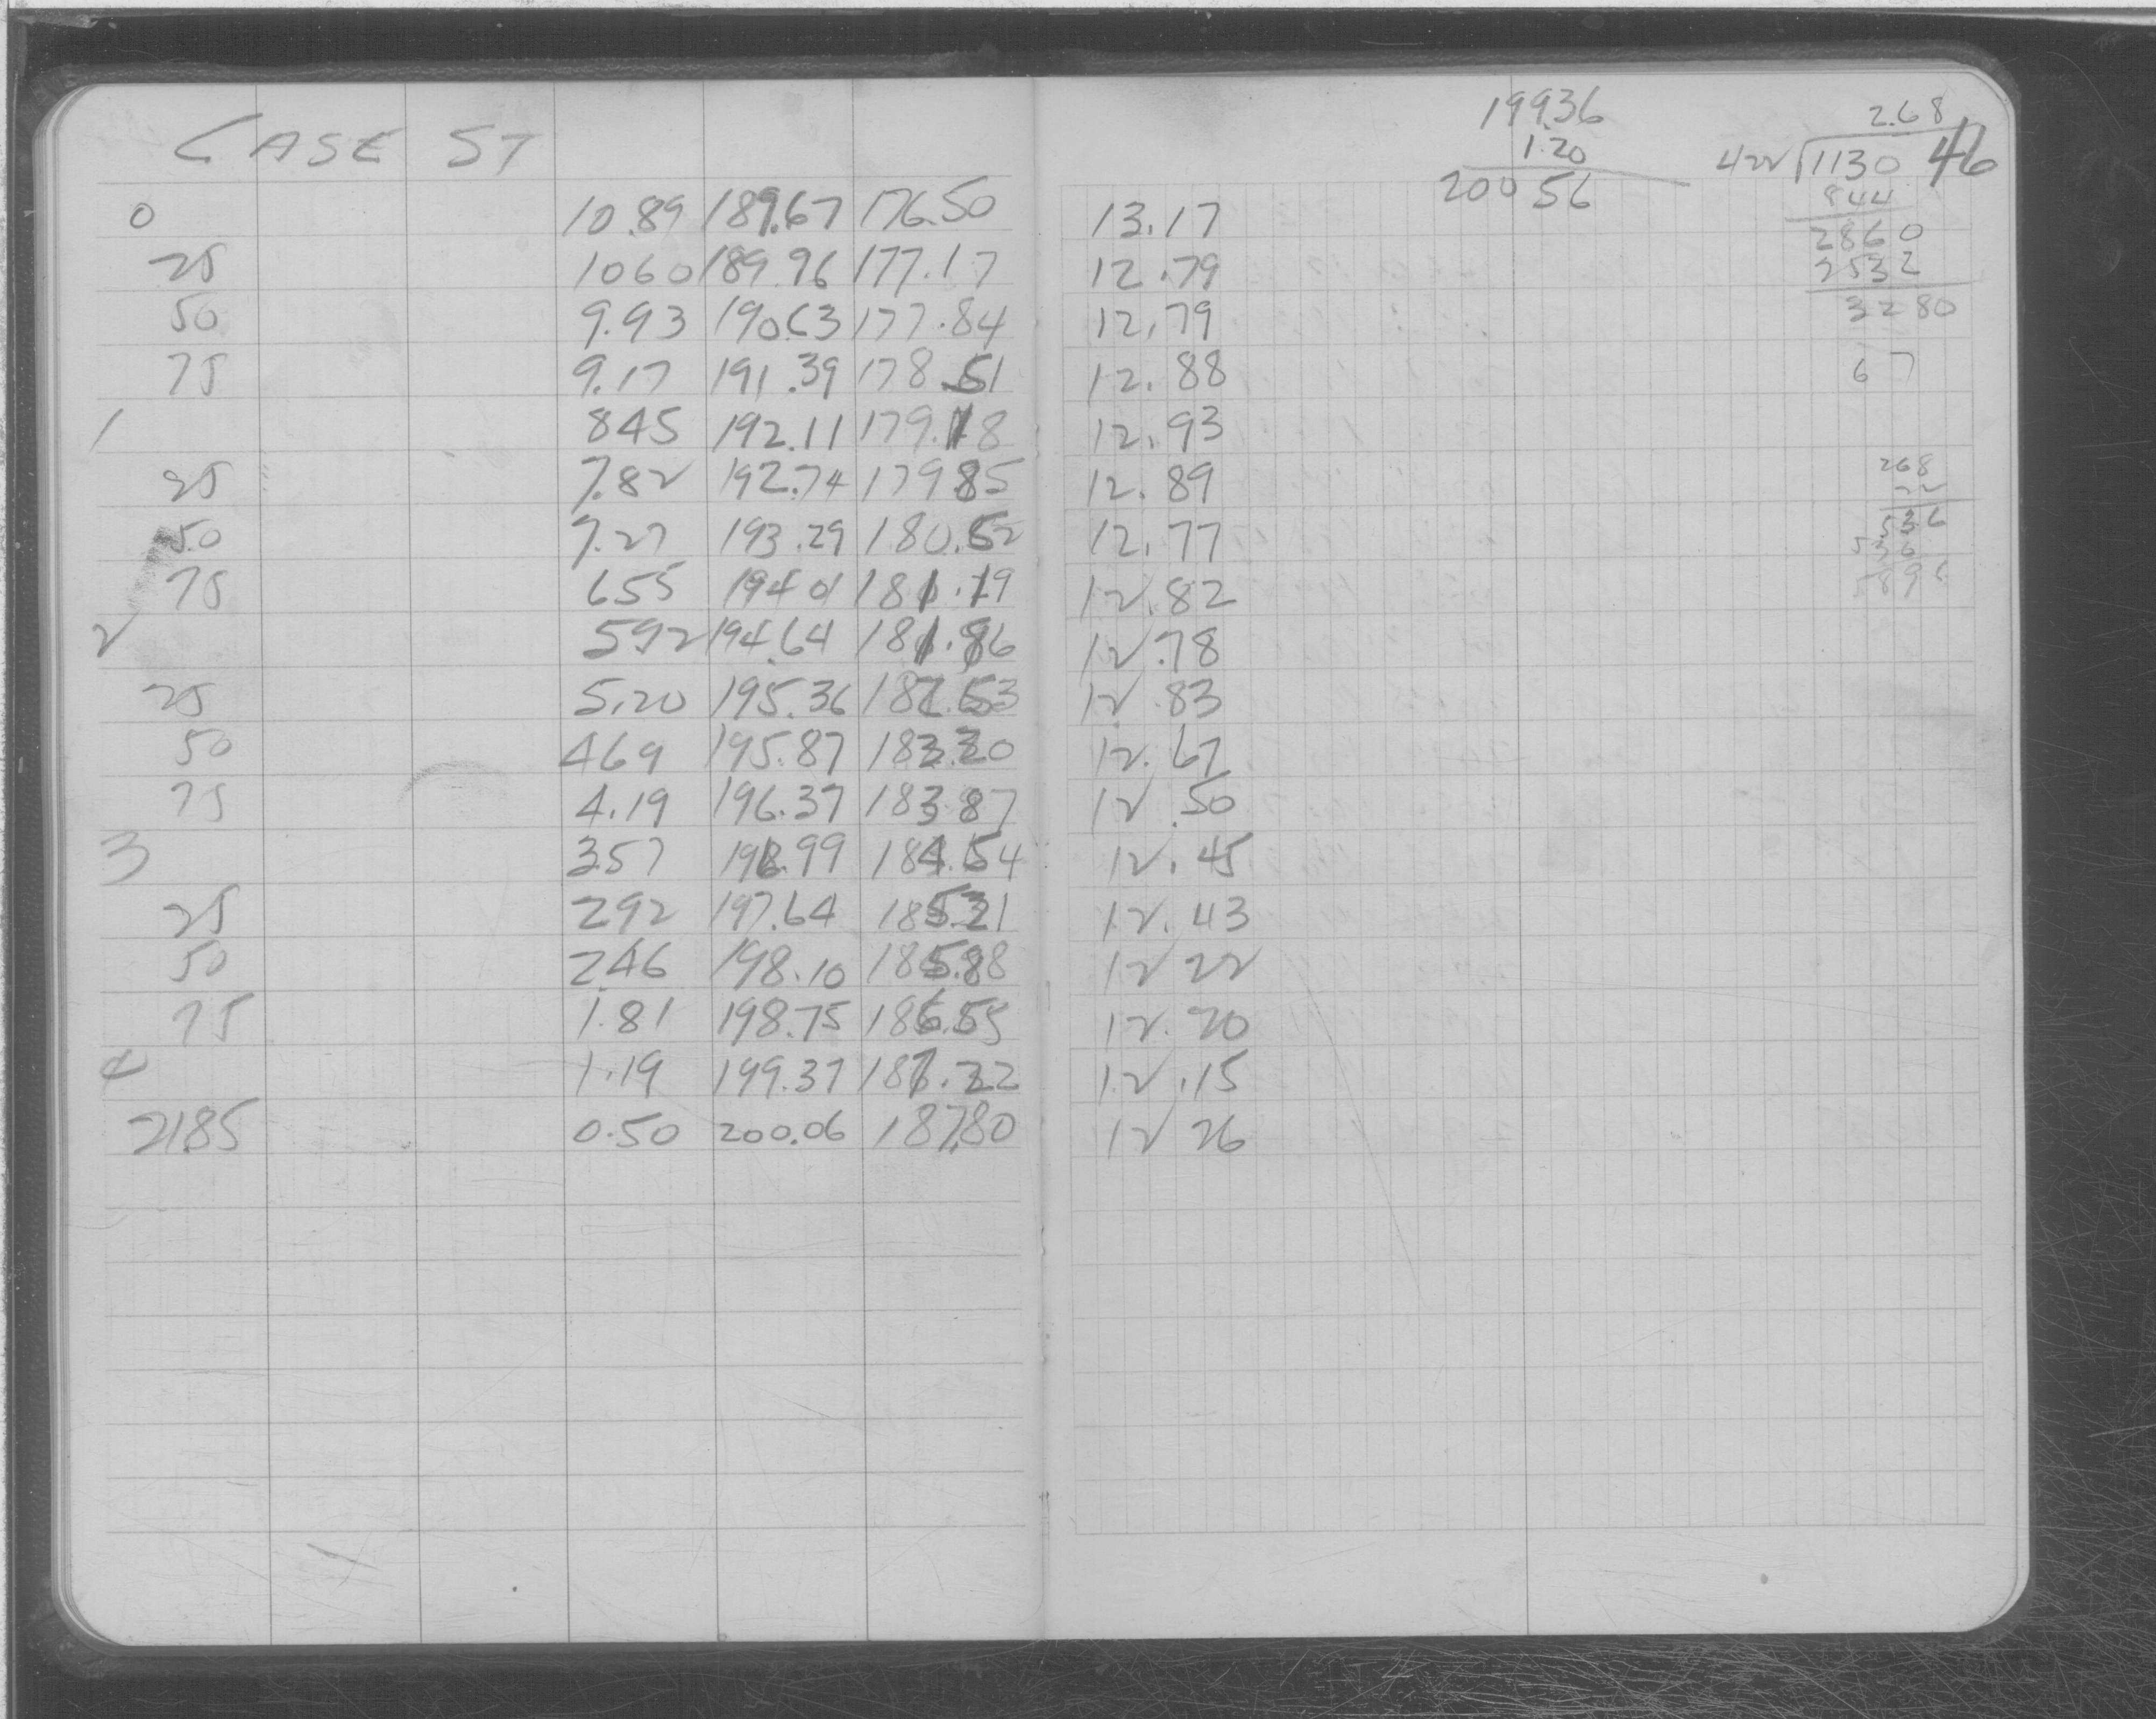 CASE ST
0 10.89 189.67 176.50 13.17
25 1060 189.96 177.17 12.79
50 9.93 190.63 177.84 12.79
75 9.17 191.39 178.51 12.88
1 845 192.11 179.18 12.93
25 7.82 192.74 17985 12.89
50 7.27 193.29 180.52 12.77
75 655 19401 181.19 12.82
2 592 194.64 181.86 12.78
25 5.20 195.36 182.53 12.83
50 469 195.87 183.20 12.67
75 4.19 196.37 18387 12.50
3 357 196.99 184.54 12.45
25 292 197.64 185.21 12.43
50 246 198.10 185.88 12 22
75 1.81 198.75 186.55 12.20
4 1.19 199.37 187.22 12.15
2185 0.50 200.06 187.80 12 26
199.36
1.20
200 56
46
2.68
422 1130
844
2860
2532
3280
67
268
22
536
536
5896